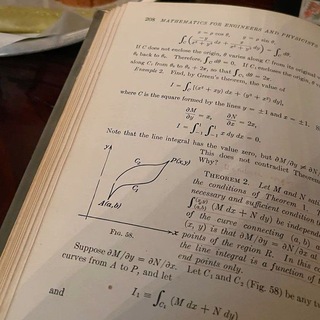 208 MATHEMATICS FOR ENGINEERS AND PHYSICISTS
x = ρ cos θ, y = ρ sin θ,
If C does not enclose the origin, θ varies along C from its original value
θ₀ back to θ₀. Therefore, ∫C dθ = 0. If C encloses the origin, θ varies
along C, from θ₀ to θ₀ + 2π, so that ∫C dθ = 2π.
Example 2. Find, by Green's theorem, the value of
I = ∫C [(x² + xy) dx + (y² + x²) dy],
where C is the square formed by the lines y = ±1 and x = ±1.
∂M/∂y = x, ∂N/∂x = 2x,
I = ∫₋₁¹ ∫₋₁¹ x dy dx = 0.
Note that the line integral has the value zero, but ∂M/∂y ≠ ∂N/
This does not contradict Theorem
Why?
THEOREM 2. Let M and N satisfy
the conditions of Theorem 1.
necessary and sufficient condition
∫(a,b)(x,y) (M dx + N dy) be independent
of the curve connecting (a, b) a
(x, y) is that ∂M/∂y = ∂N/∂x at
points of the region R. In this c
the line integral is a function of t
end points only.
Let C₁ and C₂ (Fig. 58) be any t
y
P(x,y)
C₂
C₁
A(a,b)
x
FIG. 58.
Suppose ∂M/∂y = ∂N/∂x.
curves from A to P, and let
I₁ = ∫C₁ (M dx + N dy)
and